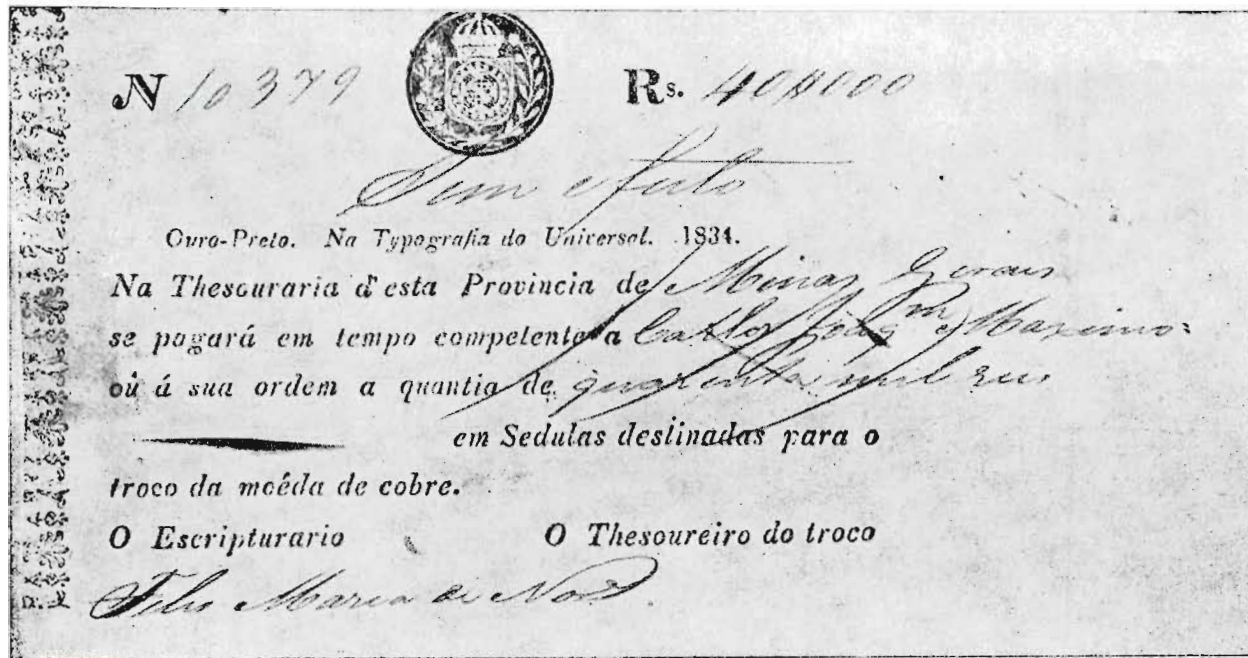 N 10379 Rs. 40$000
Sem efeito
Ouro-Preto. Na Typografia do Universal. 1834.
Na Thesouraria d'esta Provincia de Minas Geraes
se pagará em tempo competente a Carlos Joaqm Maximo
ou á sua ordem a quantia de quarenta mil reis
em Sedulas destinadas para o
troco da moéda de cobre.
O Escripturario O Thesoureiro do troco
Maria de